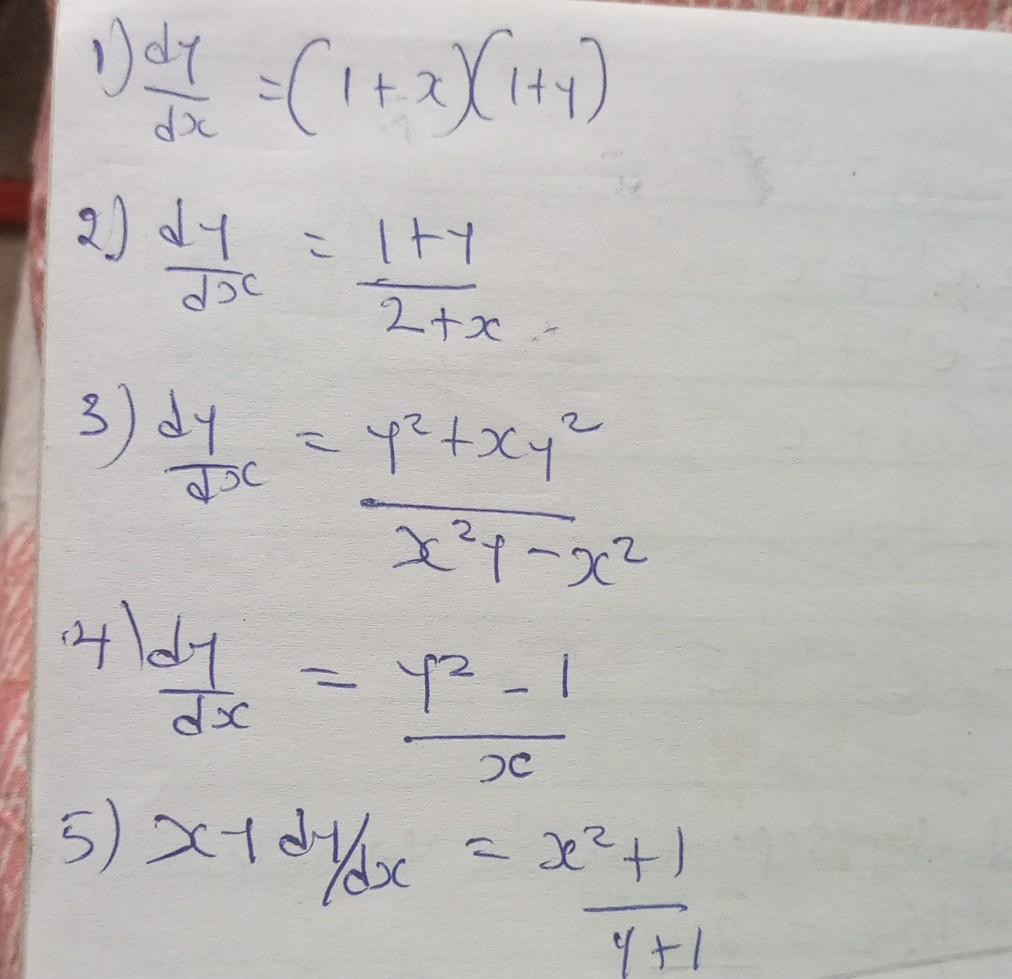 1) dy/dx = (1+x)(1+y)
2) dy/dx = 1+y / 2+x
3) dy/dx = y²+xy² / x²y-x²
4) dy/dx = y²-1 / x
5) xy dy/dx = x²+1 / y+1